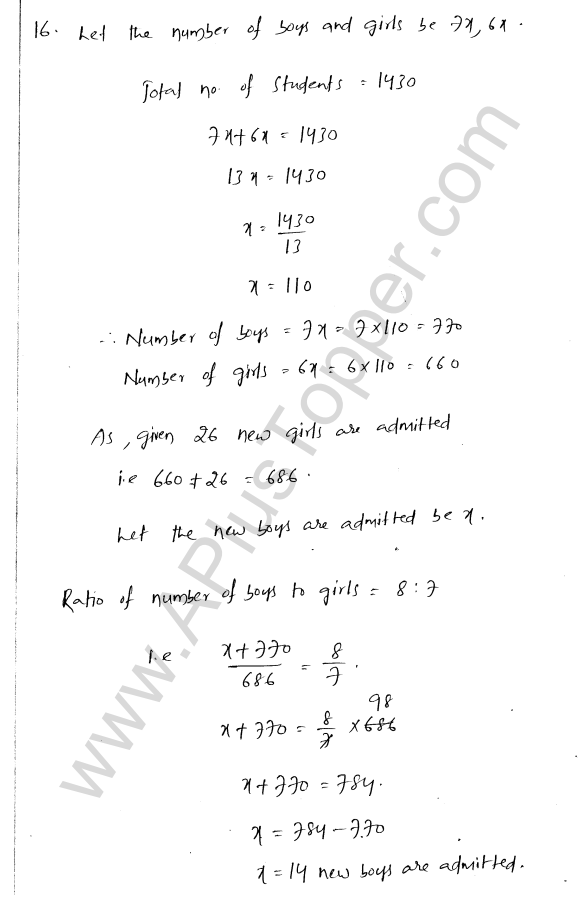 16. Let the number of boys and girls be 7x, 6x.
Total no. of students = 1430
7x + 6x = 1430
13x = 1430
x = 1430/13
x = 110
∴ Number of boys = 7x = 7×110 = 770
Number of girls = 6x = 6×110 = 660
As, given 26 new girls are admitted
i.e 660 + 26 = 686.
Let the new boys are admitted be x.
Ratio of number of boys to girls = 8:7
i.e (x+770)/686 = 8/7.
98
x + 770 = 8/7 × 686
x + 770 = 784.
x = 784 - 770
x = 14 new boys are admitted.
www.APlusTopper.com